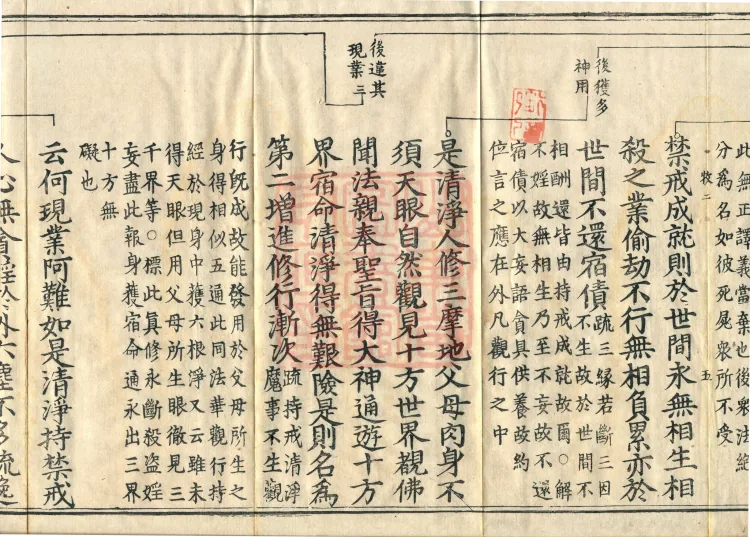 此無正譯義當棄也後衆法絶
分爲名如彼死屍衆所不受
牧二
五
禁戒成就則於世間永無相生相
殺之業偷劫不行無相負累亦於
後獲多
神用
世間不還宿債
疏三緣若斷三因
不生故於世間不
相酬還皆由持戒成就故圖○解
不婬故無相生乃至不妄故不還
宿債以大妄語貪具供養故約
位言之應在外凡觀行之中
是清淨人修三摩地父母肉身不
須天眼自然觀見十方世界覩佛
後違其
現業三
聞法親奉聖旨得大神通遊十方
界宿命清淨得無艱險是則名爲
第二增進修行漸次
疏持戒清淨
魔事不生觀
行旣成故能發用於父母所生之
身得相似五通此同法華觀行持
經於現身中獲六根淨又云雖未
得天眼但用父母所生眼徹見三
千界等○標此眞修永斷殺盜婬
妄盡此報身獲宿命通永出三界
十方無
礙也
云何現業阿難如是清淨持禁戒
人心無貪婬於外六塵不多流逸